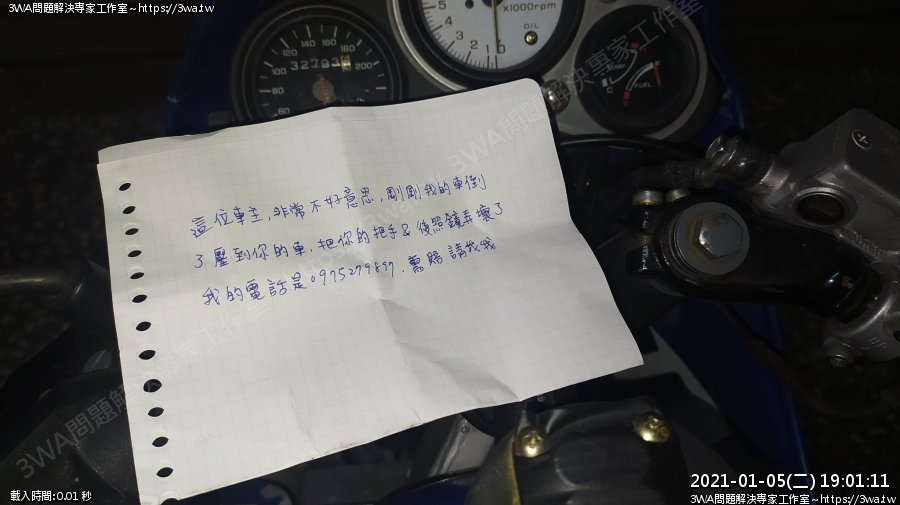 3WA問題解決專家工作室~https://3wa.tw
x1000rpm
OIL
80 100 120 140 160 180 200
60
5 4 3 2 1 0
TEMP
C
FUEL
這位車主,非常不好意思,剛剛我的車倒
了壓到你的車,把你的把手&後照鏡弄壞了
我的電話是
需賠請找我
3WA問題解決專家工作室
3WA問題解決專家工作室
載入時間:0.01 秒
2021-01-05(二) 19:01:11
3WA問題解決專家工作室~https://3wa.tw